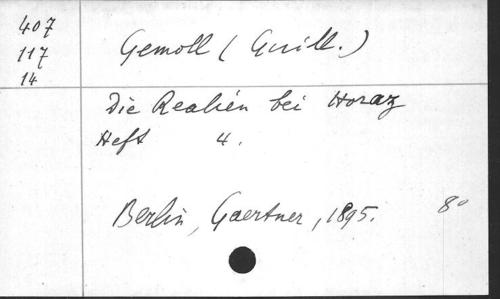 407
117
14
Gemoll (Guill.)
Die Realien bei Horaz
Heft 4.
Berlin, Gaertner, 1895. 8°